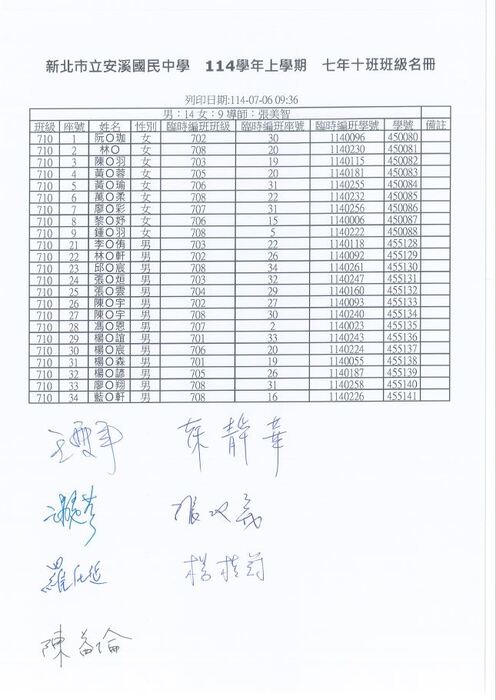 新北市立安溪國民中學 114學年上學期 七年十班班級名冊
列印日期:114-07-06 09:36
男：14 女：9 導師：張美智
班級 座號 姓名 性別 臨時編班班級 臨時編班座號 臨時編班學號 學號 備註
710 1 阮O珈 女 702 30 1140096 450080
710 2 林O 女 708 20 1140230 450081
710 3 陳O羽 女 703 19 1140115 450082
710 4 黃O蓉 女 705 20 1140181 450083
710 5 黃O瑜 女 706 31 1140255 450084
710 6 萬O柔 女 708 22 1140232 450085
710 7 廖O彩 女 707 31 1140256 450086
710 8 黎O妤 女 706 15 1140006 450087
710 9 鍾O羽 女 708 5 1140222 450088
710 21 李O侑 男 703 22 1140118 455128
710 22 林O軒 男 702 26 1140092 455129
710 23 邱O宸 男 708 34 1140261 455130
710 24 張O烜 男 703 32 1140247 455131
710 25 張O雲 男 704 29 1140160 455132
710 26 陳O宇 男 702 27 1140093 455133
710 27 陳O宇 男 708 30 1140240 455134
710 28 馮O恩 男 707 2 1140023 455135
710 29 楊O誼 男 701 33 1140243 455136
710 30 楊O宸 男 706 20 1140224 455137
710 31 楊O森 男 701 19 1140055 455138
710 32 楊O諺 男 705 26 1140187 455139
710 33 廖O翔 男 708 31 1140258 455140
710 34 藍O軒 男 708 16 1140226 455141
葉靜華